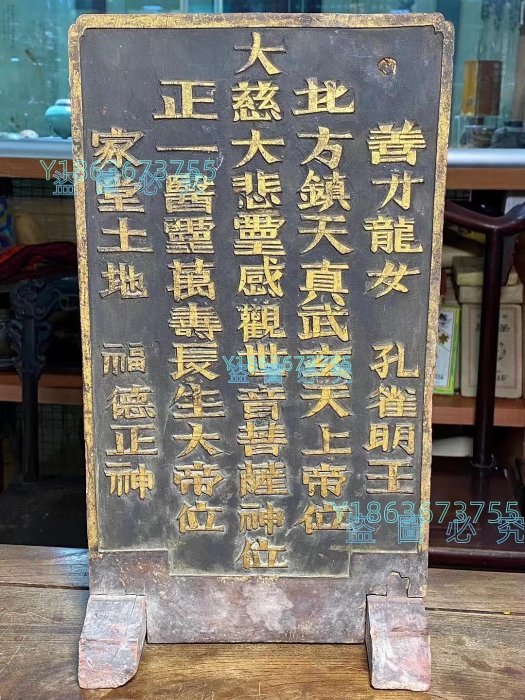 善才龍女 孔雀明王
北方鎮天真武玄天上帝位
大慈大悲靈感觀世音菩薩神位
正一醫靈萬壽長生大帝位
家堂土地 福德正神
Y1863673755
盗圖必究
Y1863673755
盗圖必究
Y1863673755
盗圖必究